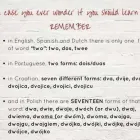 case you ever wonder if you should learn
REMEMBER:
in English, Spanish and Dutch there is only one
of word "two": two, dos, twee
in Portuguese, two forms: dois/duas
in Croatian, seven different forms: dva, dvije,
dvojica, dvojice, dvojici, dvojicu
and in Polish there are SEVENTEEN forms of that
word: dwa, dwie, dwoje, dwóch (or dwu), dwaj,
dwiema, dwoma (or dwóm), dwoma, dwojga,
dwojgu, dwojgiem, dwójka, dwójki,
dwójkę, dwójką, dwójce, dwójko